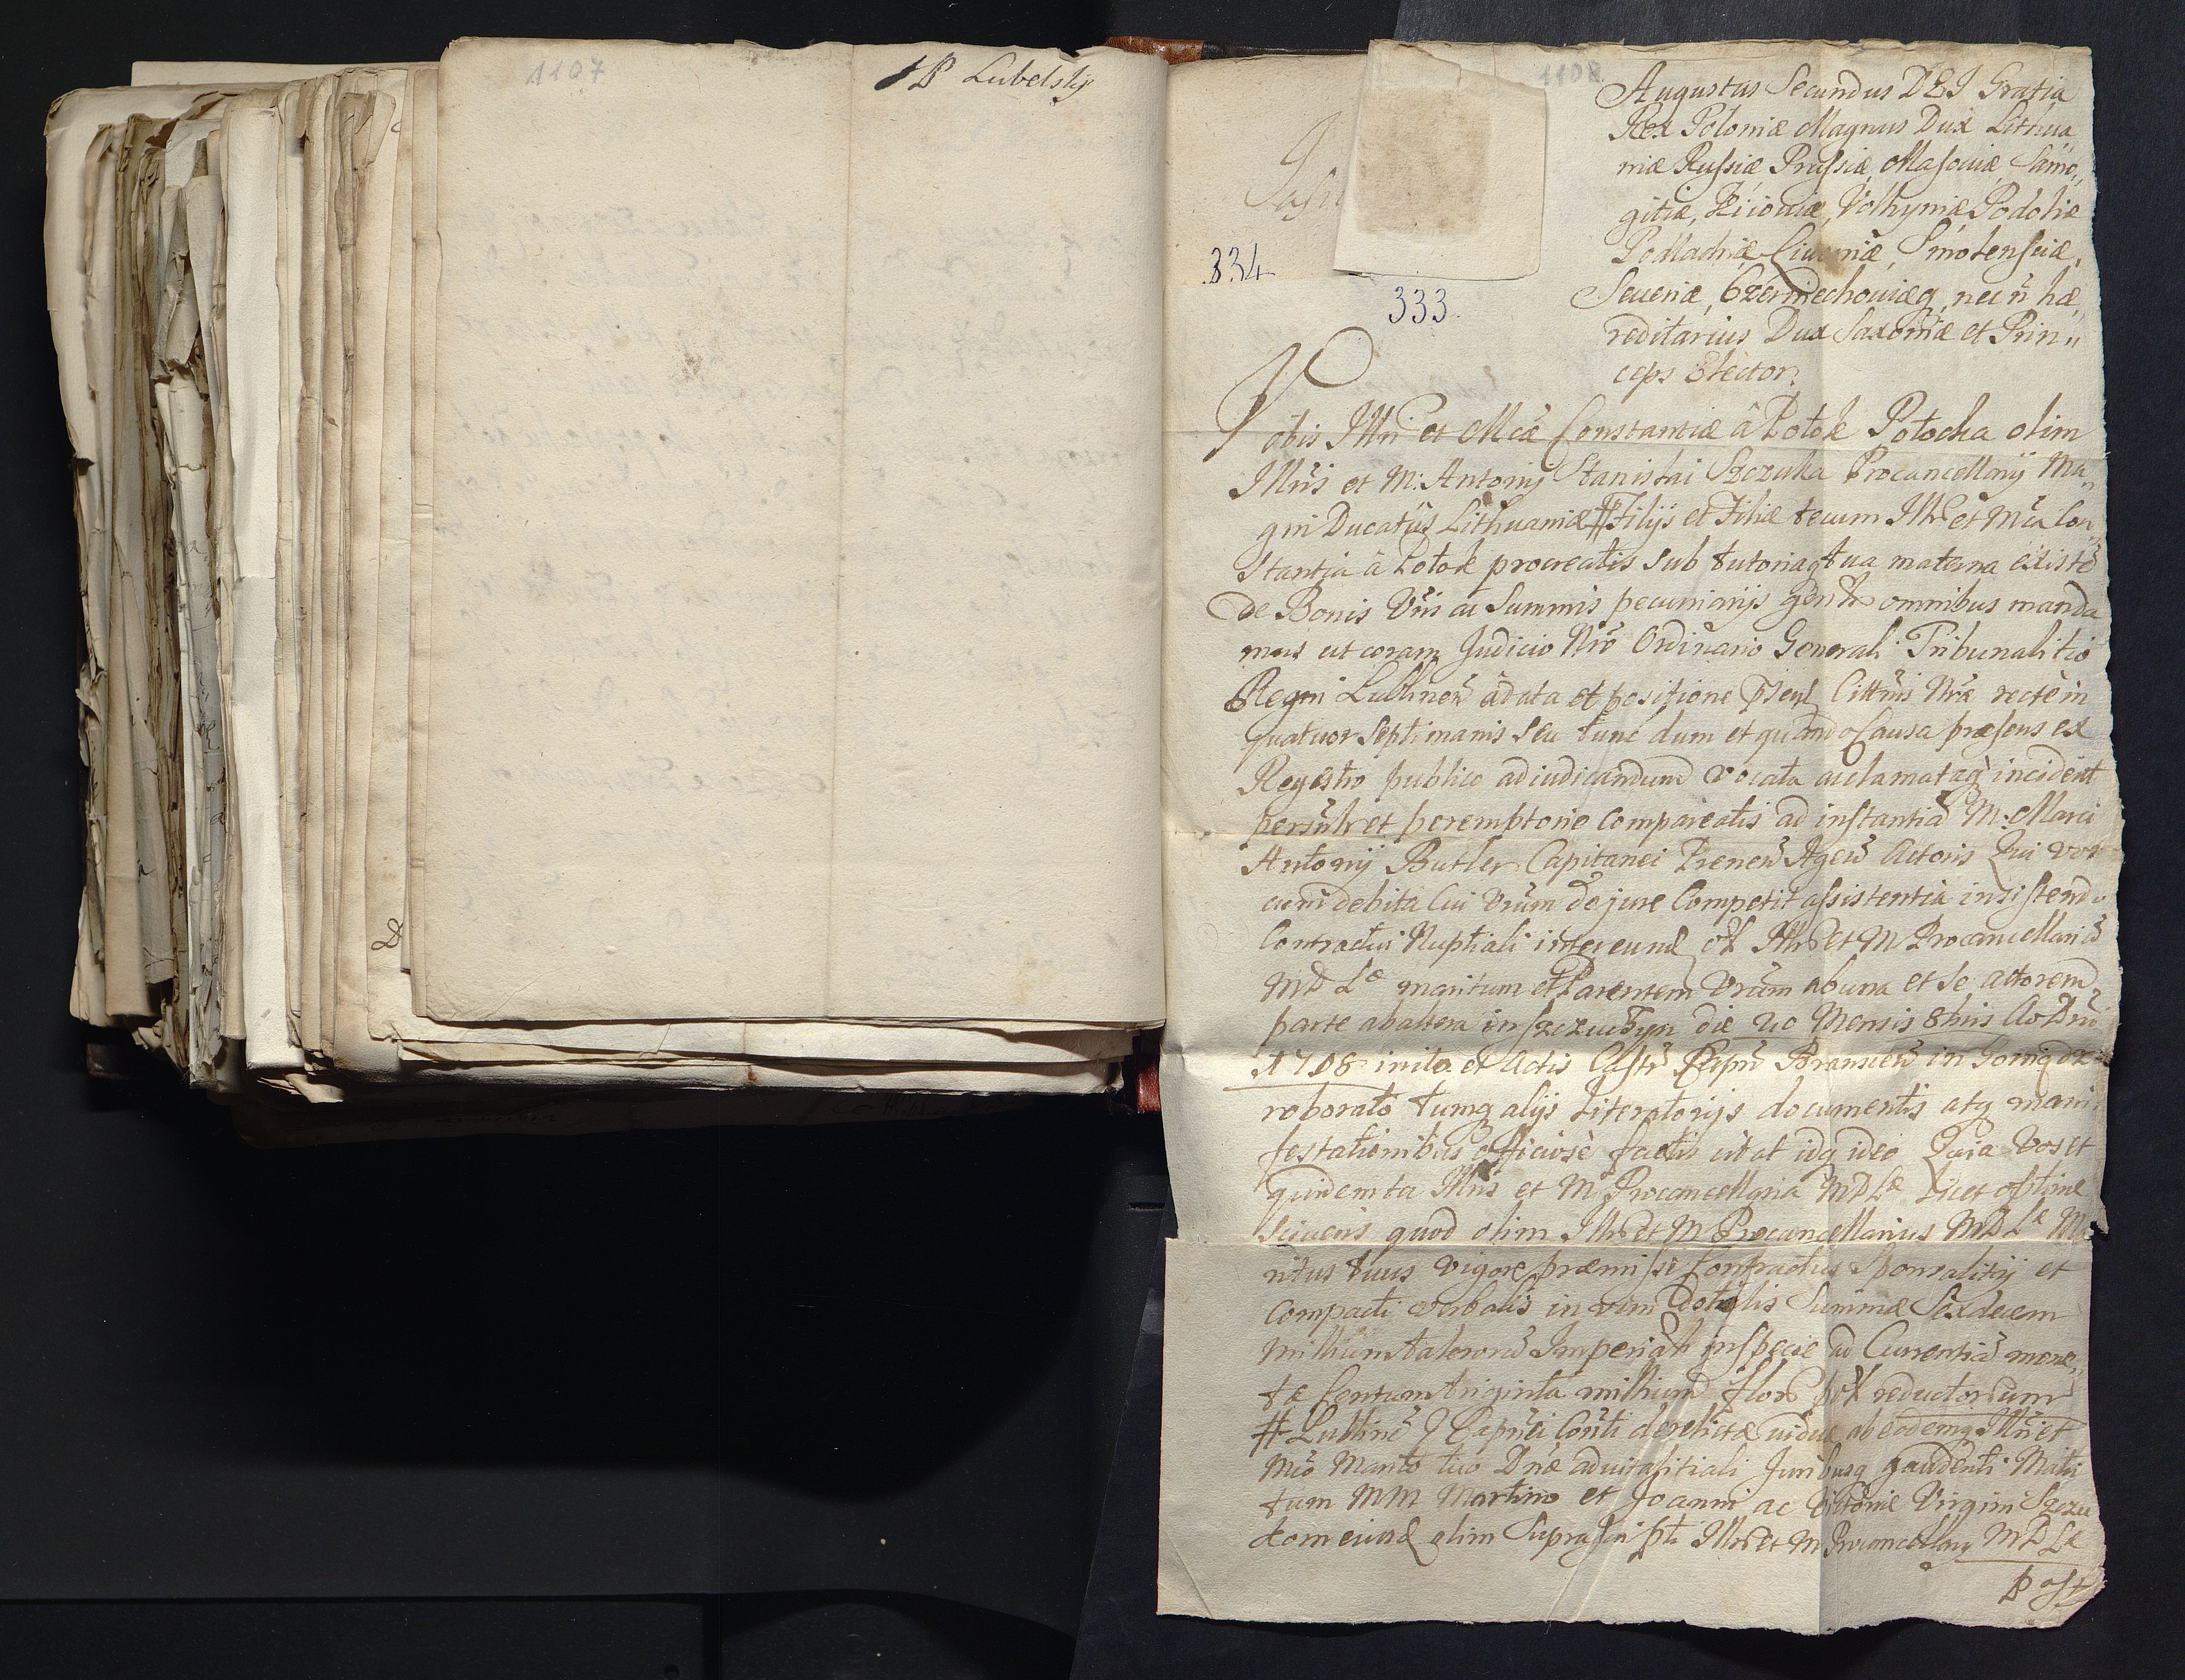 1107
Lubelsky
1108
334
333.
Augustus Secundus DEI Gratia
Rex Poloniæ Magnus Dux Lithua
niæ Rußiæ Prußiæ, Masoviæ, Samo„
gitiæ, Kijoviæ, Volhyniæ Podoliæ
Podlachiæ Livoniæ, Smolensciæ,
Severiæ, Czerniechoviæq, nec ñ hæ„
reditarius Dux Saxoniæ et Prin„
ceps Elector.
Vobis Illri et Mcæ Constantiæ â Potok Potocka olim
Illris et M: Antonij Stanislai Szczuka Procancellarij Ma„
gni Ducatûs Lithuaniæ # Filijs et Filiæ tecum Illri et Mca Con„
stantia â Potok procreatis sub tutoriaq tua materna existẽ
de Bonis Vris ac Summis pecuniarijs gẽnlr omnibus manda
mus ut coram Judicio Nrõ Ordinario Generali Tribunalitio
Regni Lublineñ â data et positione pñtiũ Cittnis Nræ recte in
quatuor septimanis seu tunc dum et quando Causa præsens ex
Registro publico ad iudicandum vocata acclamataq incident
persñlr et peremptorie Compareatis ad instantiã M: Marci
Antonij Butler Capitanei Preneñ Ageñ Actoris Qui vos
cum debita Cui Vrum de jure Competit aßistentia insistendo
Contractui Nuptiali inter eund et Illrem et M Procancellariũ
MDLæ maritum et Parentem Vrum ab una et se actorem
parte ab altera in Szczuczyn die 20 Mensis 8bris Ao Dni
1708 inito et Actis Castr Capñ Branscen in Goniądz
roborato tumq alijs Literatorijs documentis atq mani„
festationibus officiose factis citat idq ideo Quia Vos et
quidem tu Illris et M Procancellaria MDLæ licet optime
sciveris quod olim Illris et M Procancellarius MDLæ Ma
ritus tuus vigore præmißi Contractus Sponsalitij et
Compacti verbalis in vim dotalis Summæ Sexdecem
millium talerorũ Imperialiũ in specie ad Currentiã mone„
tæ Centum triginta millium flor pol reductorum
# Lublinẽ Capnei Conti derelictæ viduæ ab eodemq Illri et
Mco Marito tuo Dnæ advitalitiali Juribusq gaudenti Matri
tum MM Martino et Joanni ac Victoriæ Virgini Szczu
kom eiusd olim Suprascripti Illris et M Procancellarij MDLæ
post